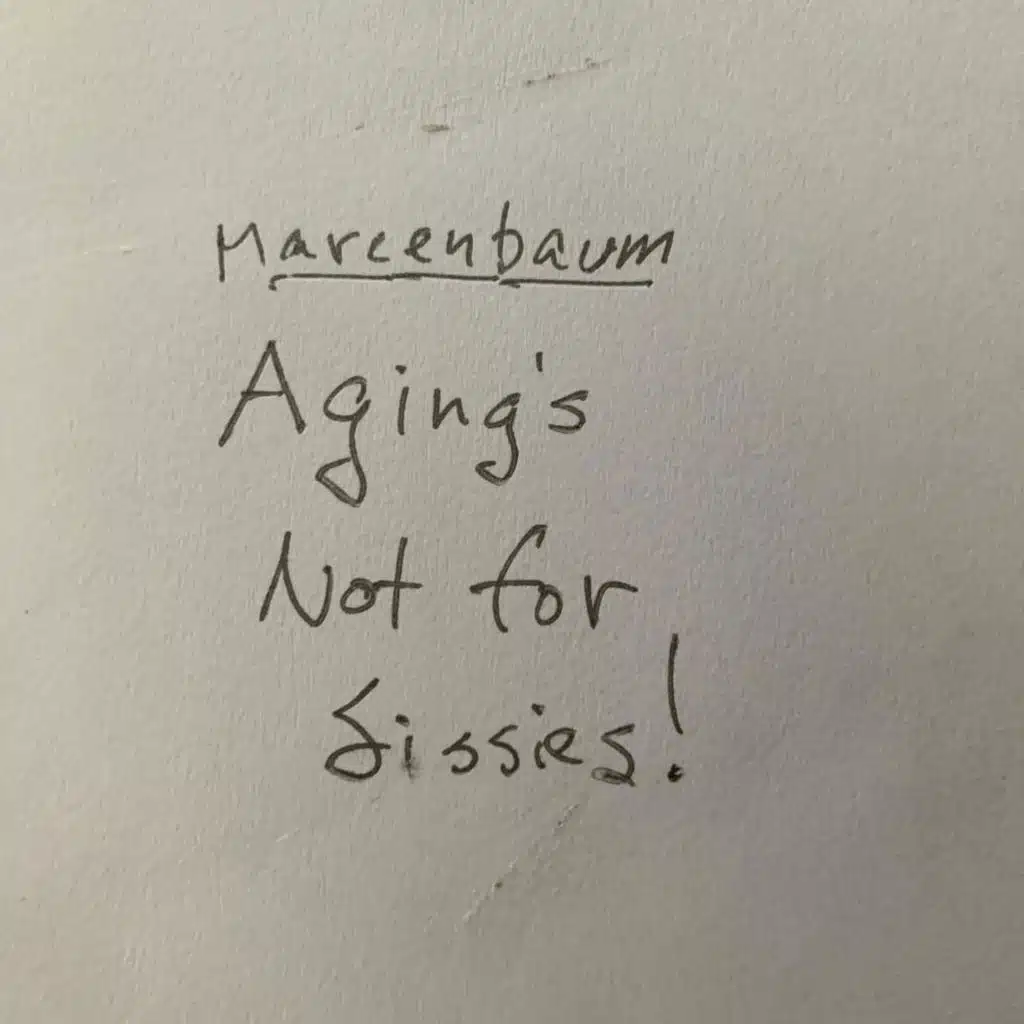 Marcenbaum
Aging's
Not for
Sissies!